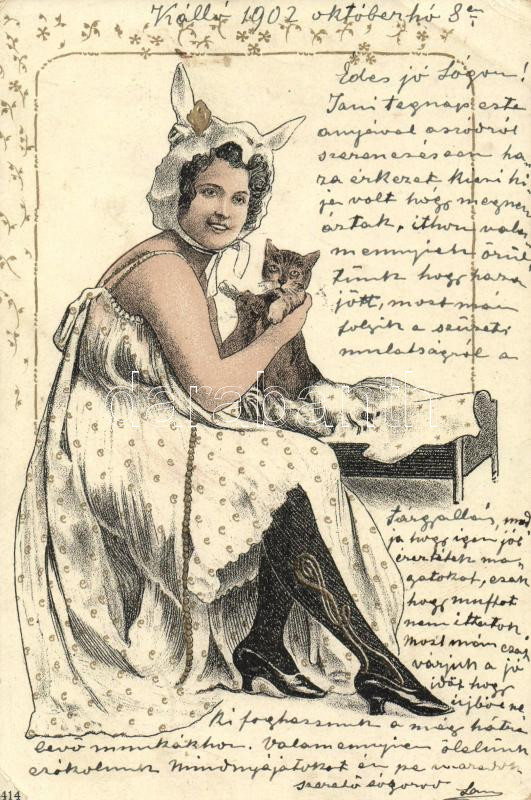 Kálló 1902 októberhó 8 én
Édes jó Sógor!
Jani tegnap este
anyával aszódról
szerencsésen ha-
za érkezett kiori ki
je volt hogy megner
látták, ithon vala-
mennyien örül-
tünk hogy haza
jött, most már
folyik a szüreti
mulatságról a
tárgyallás, mond
ja hogy igen jól
érezték ma-
gatokat, csak
hogy muftot
nem ittatok
Most már csak
várjuk a jó
időt hogy
ujból ne
ki foghassunk a még hátra
levő munkákhoz. Valamennyien ölelünk
csókolunk mindnyájatokat én pe maradok
szerető sógorod
darabanth
414